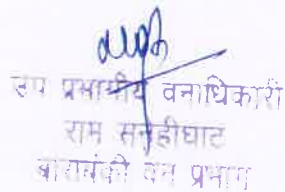 उप प्रभागीय वनाधिकारी
राम सनेहीघाट
बाराबंकी वन प्रभाग